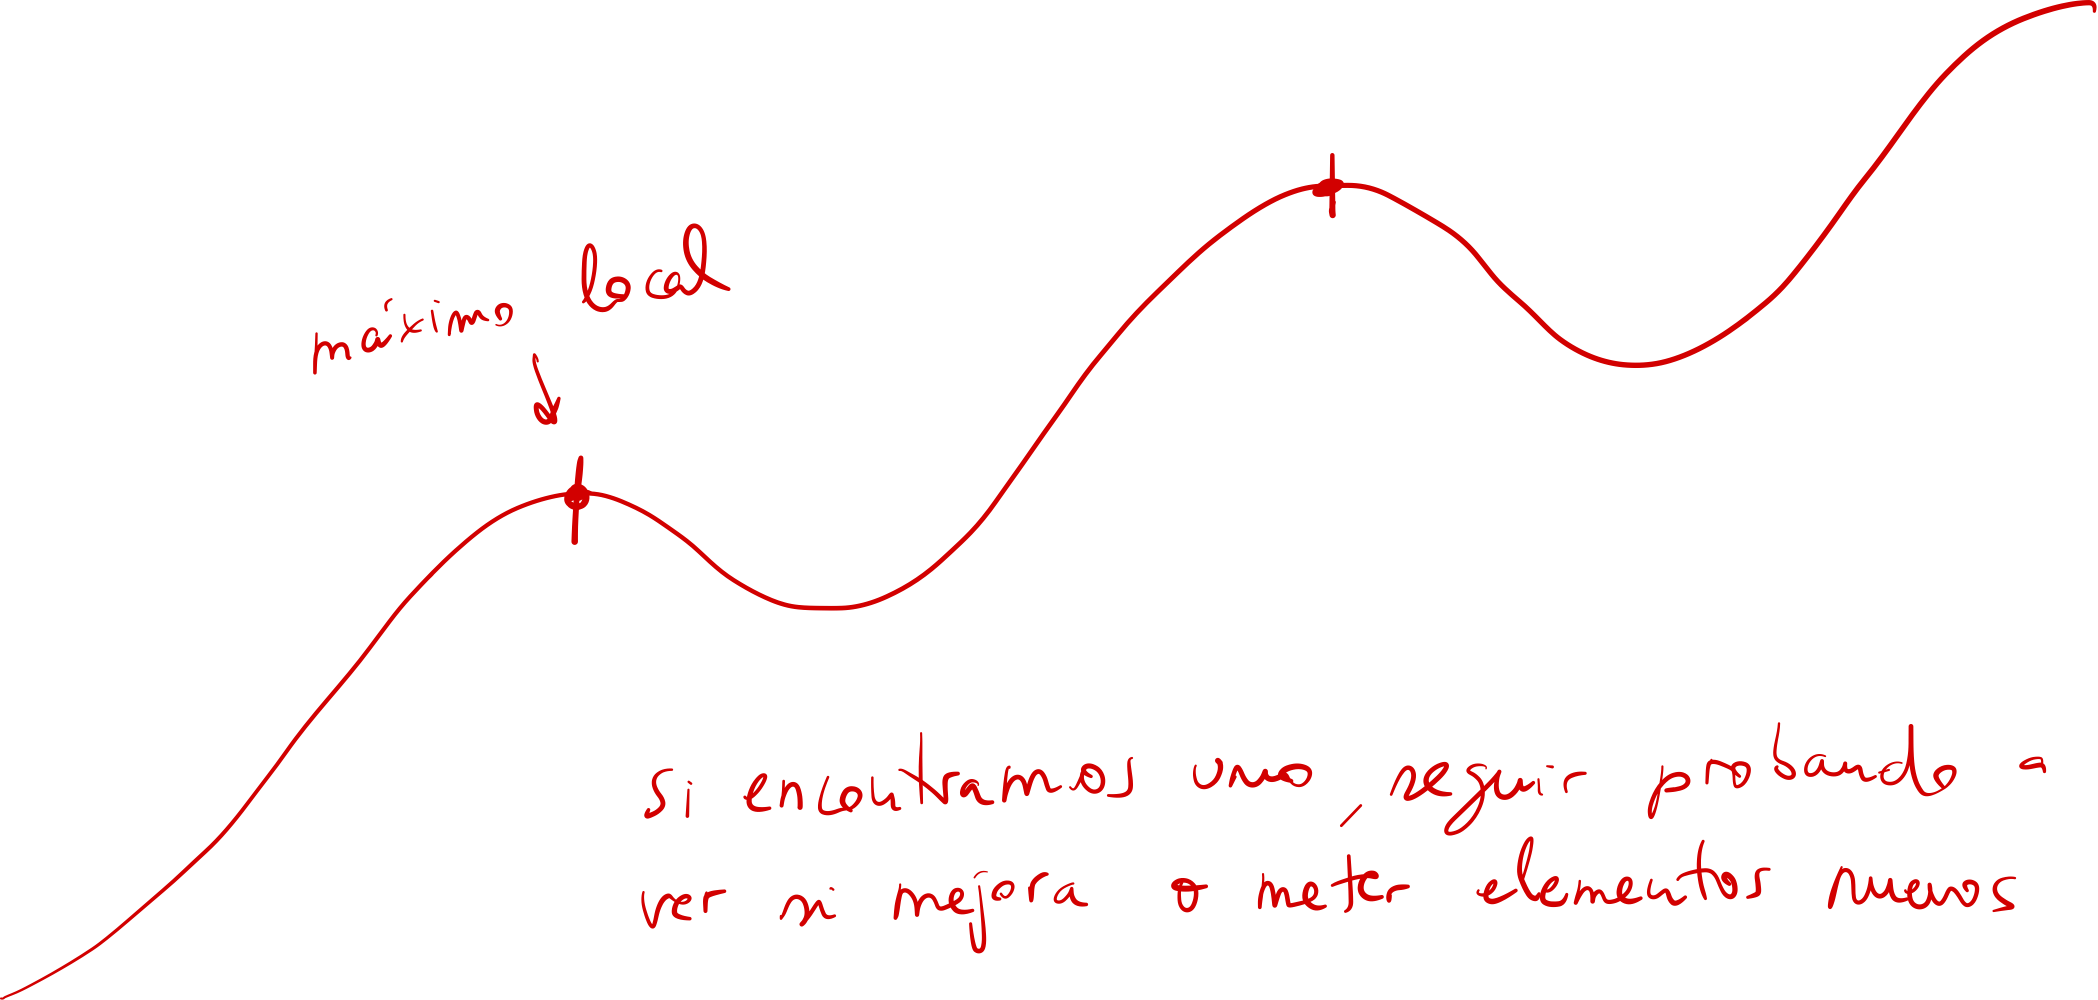 máximo local
si encontramos uno, seguir probando a
ver si mejora o meter elementos nuevos